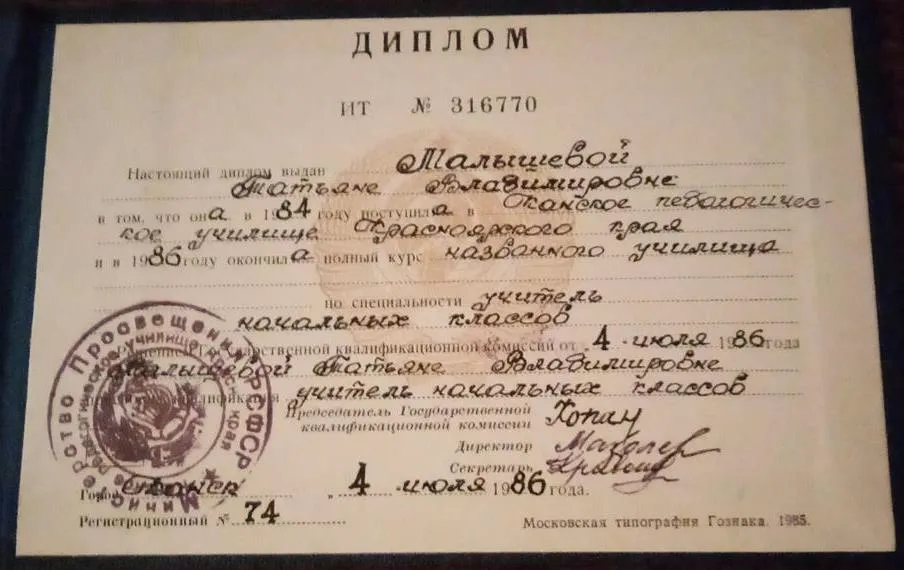 ДИПЛОМ
ИТ № 316770
Настоящий диплом выдан Малышевой
Татьяне Владимировне
в том, что она в 1984 году поступила в Канское педагогичес-
кое училище Красноярского края
и в 1986 году окончила полный курс названного училища
по специальности учитель
начальных классов
Решением Государственной квалификационной комиссии от „4 июля 1986 года
Малышевой Татьяне Владимировне
квалификация учитель начальных классов
Председатель Государственной
квалификационной комиссии
Директор
Секретарь
Город Канск „4 июля 1986 года.
Регистрационный № 74
Московская типография Гознака. 1985.
Министерство Просвещения РСФСР
педагогическое училище
край